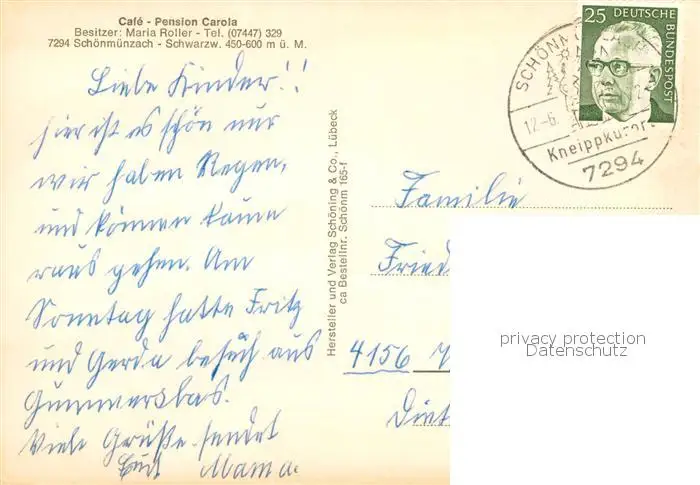 Café - Pension Carola
Besitzer: Maria Roller - Tel. (07447) 329
7294 Schönmünzach - Schwarzw. 450-600 m ü. M.
Liebe Kinder!!
hier ist es schön nur
wir haben Regen,
und können kaum
raus gehen. Am
Sonntag hatte Fritz
und Gerda besuch aus
Gummersbas.
Viele Grüße sendet
Euch Mama
Hersteller und Verlag Schöning & Co., Lübeck
ca Bestellnr. Schönm 165-f
25 DEUTSCHE BUNDESPOST
SCHÖNM
12.-6.
Kneippkurort
7294
Familie
Fried
4156
privacy protection
Datenschutz